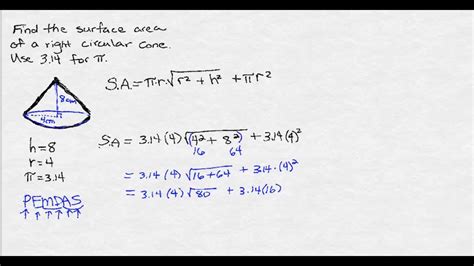 Find the surface area
of a right circular cone.
Use 3.14 for π.
8cm
4cm
h=8
r=4
π=3.14
PEMDAS
↑↑↑↑↑↑
S.A=πr·√r²+h² +πr²
S.A= 3.14(4)√(4²+8²) +3.14(4)²
16 64
= 3.14(4)√16+64 +3.14·(4)²
= 3.14(4)√80 + 3.14(16)